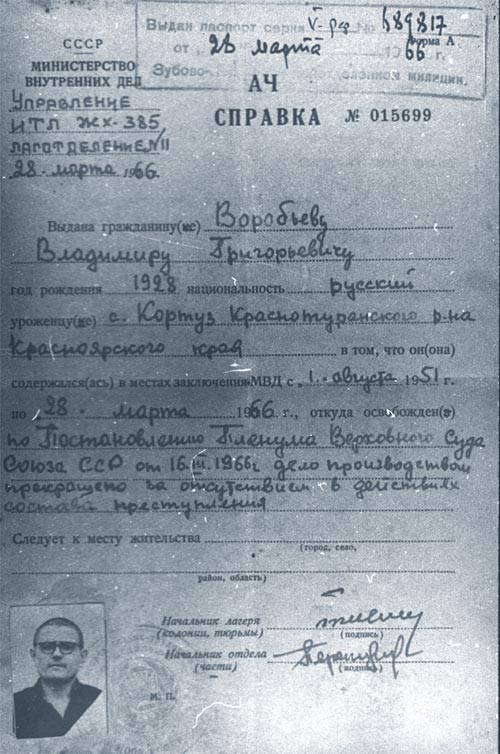 Выдан паспорт серия V-рар № 689817
от 28 марта 1966
Зубово- отделением милиции.
Форма А
СССР
МИНИСТЕРСТВО
ВНУТРЕННИХ ДЕЛ
Управление
ИТЛ ЖХ-385
Лаготделение № 11
28 марта 1966.
АЧ
СПРАВКА № 015699
Выдана гражданину(ке) Воробьеву
Владимиру Григорьевичу
год рождения 1928 национальность русский
уроженцу(ке) с. Кортуз Краснотуранского р-на
Красноярского края в том, что он(она)
содержался(ась) в местах заключения МВД с „1„ августа 1951 г.
по „28„ марта 1966 г., откуда освобожден(а)
по Постановлению Пленума Верховного Суда
Союза ССР от 16.III.1966г дело производством
прекращено за отсутствием в действиях
состава преступления
Следует к месту жительства
(город, село,
район, область)
Начальник лагеря
(колонии, тюрьмы) (подпись)
Начальник отдела
(части) (подпись)
М. П.